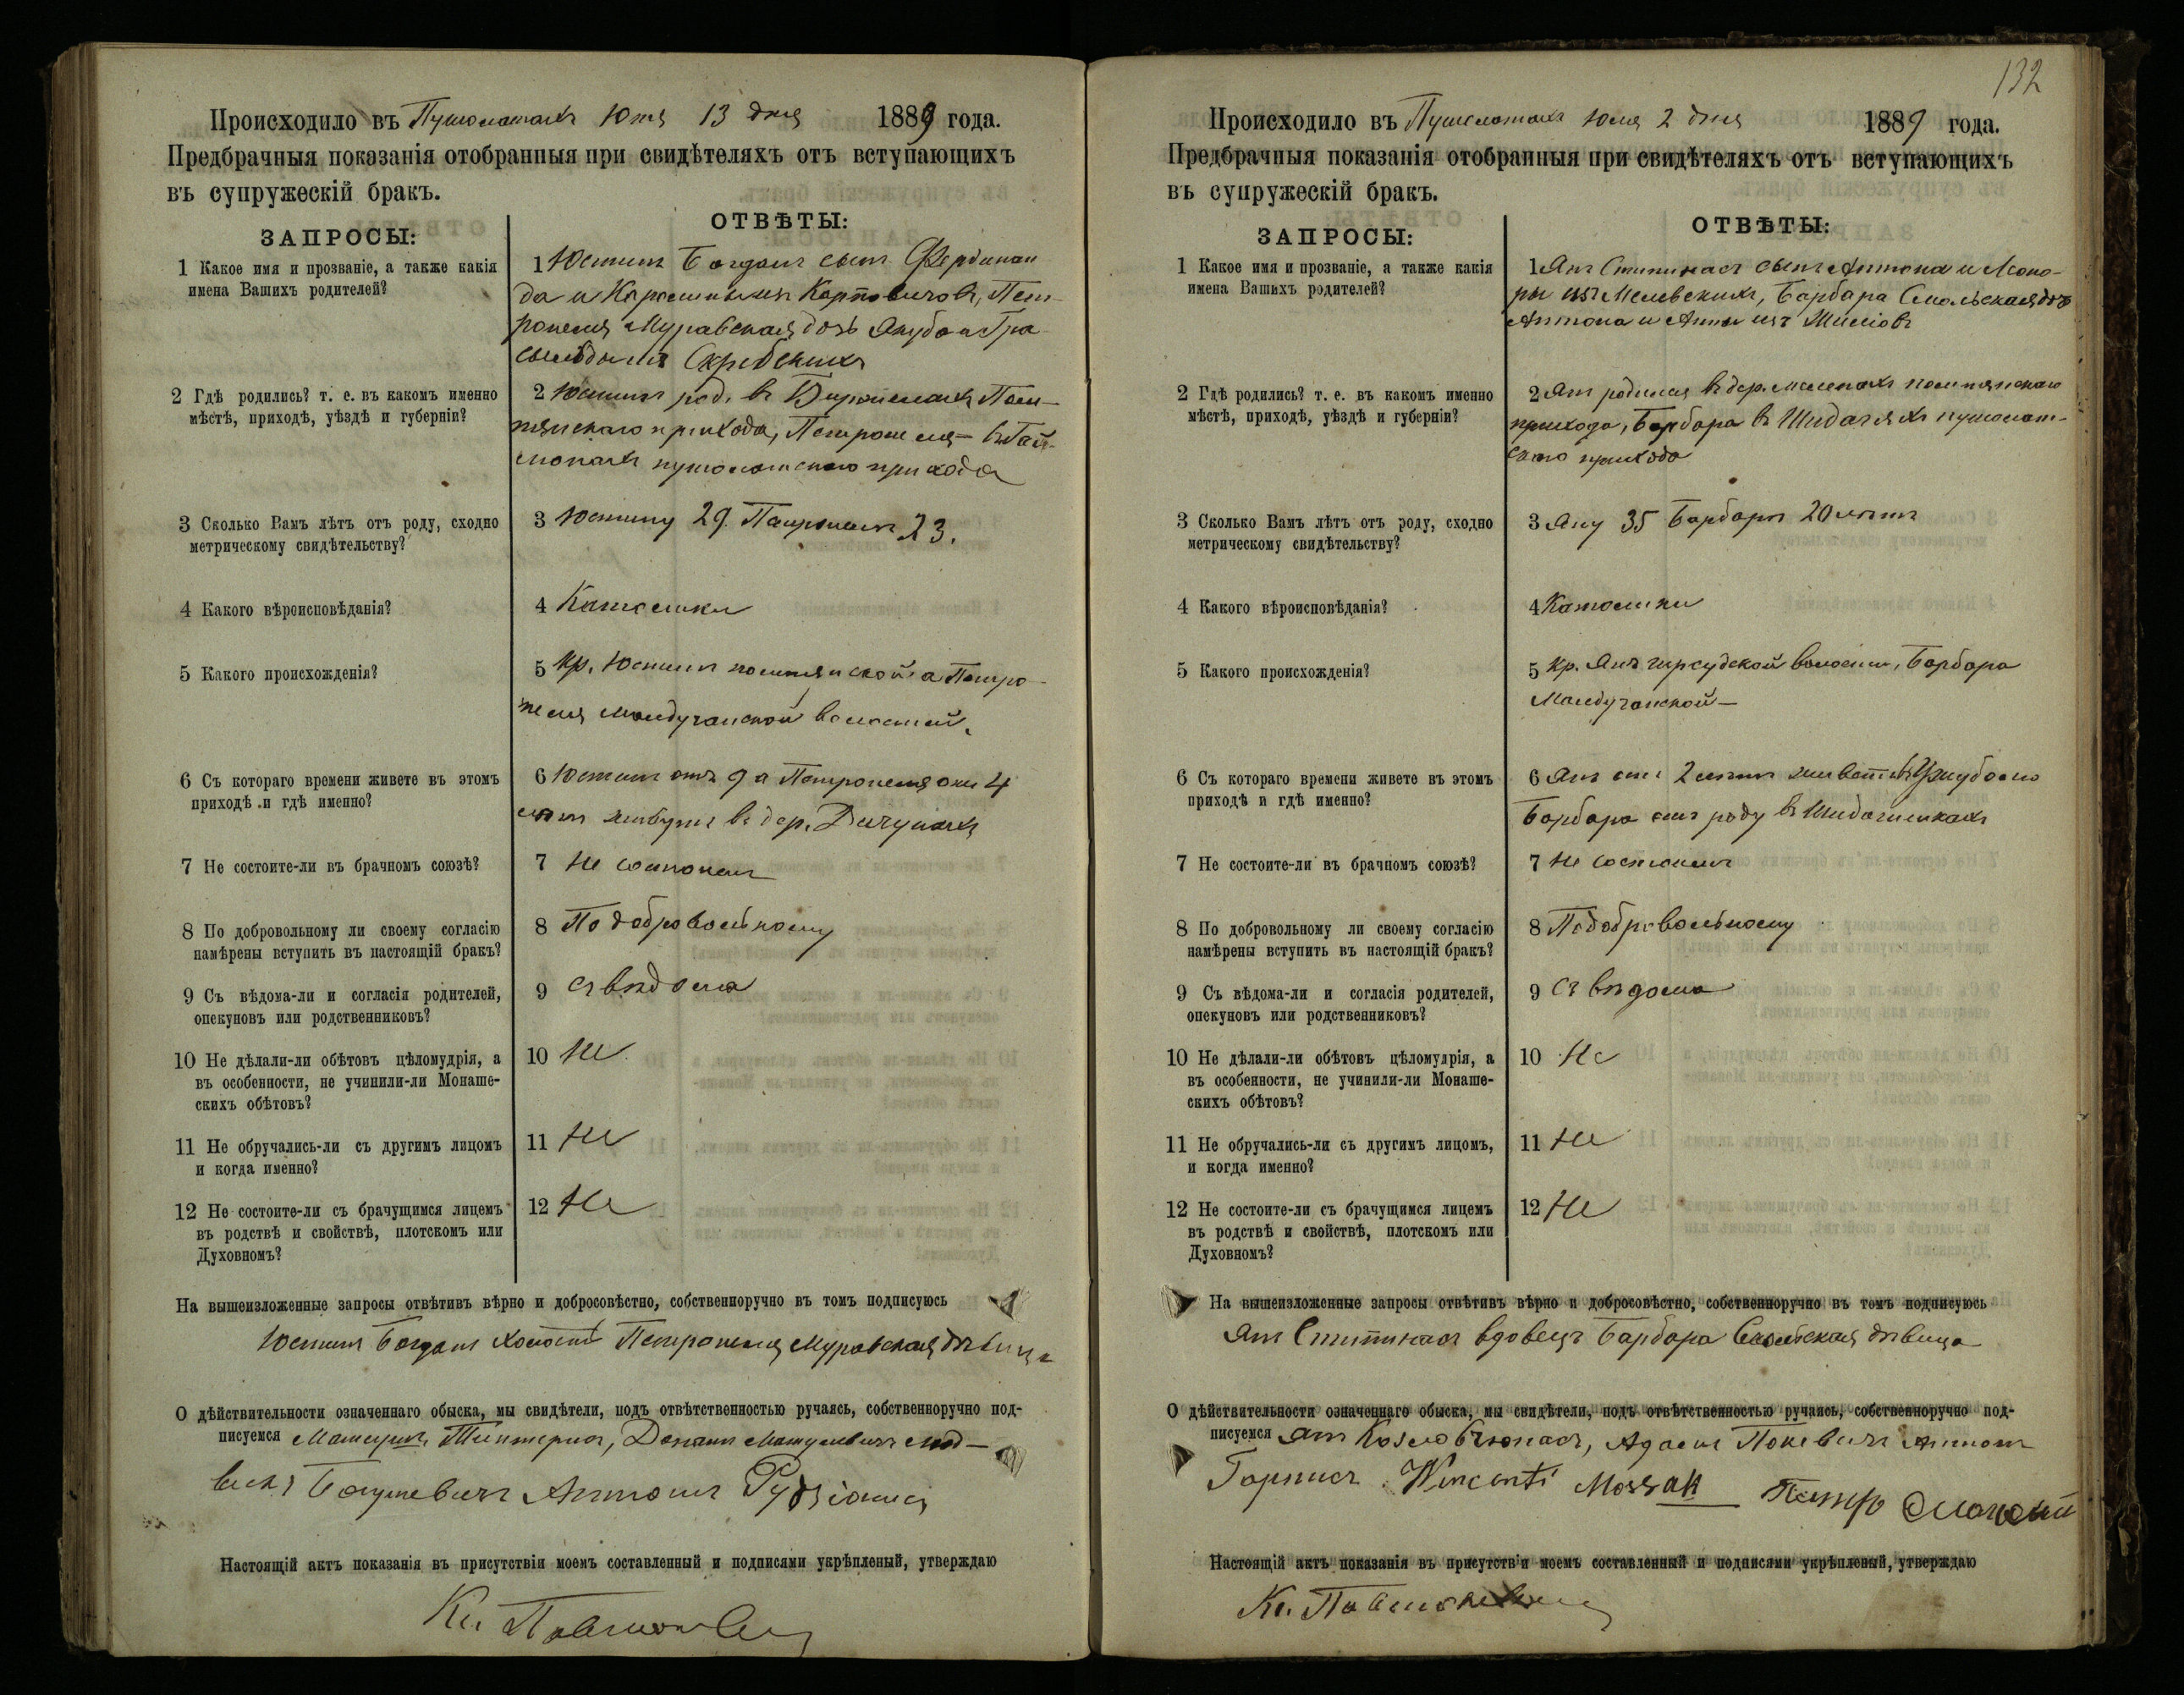 Происходило въ Пушолотахъ Юня 13 дня 1889 года.
Предбрачныя показанія отобранныя при свидѣтеляхъ отъ вступающихъ
въ супружескій бракъ.
ЗАПРОСЫ:
ОТВѢТЫ:
1 Какое имя и прозваніе, а также какія
имена Вашихъ родителей?
1 Юстинъ Богданъ сынъ Фердинан
да и Каролины изъ Карповичовъ, Пет-
ронеля Муравская дочь Якуба и
Скрибскихъ
2 Гдѣ родились? т. е. въ какомъ именно
мѣстѣ, приходѣ, уѣздѣ и губерніи?
2 Юстинъ род. въ
прихода, Петронеля въ
пушолотскаго прихода
3 Сколько Вамъ лѣтъ отъ роду, сходно
метрическому свидѣтельству?
3 Юстину 29. Петронели 23.
4 Какого вѣроисповѣданія?
4 Католики
5 Какого происхожденія?
5 Кр. Юстинъ а Петро-
неля волостей.
6 Съ котораго времени живете въ этомъ
приходѣ и гдѣ именно?
6 Юстинъ отъ 9 а Петронеля 4
лѣтъ живутъ въ дер.
7 Не состоите-ли въ брачномъ союзѣ?
7 Не состоимъ
8 По добровольному ли своему согласію
намѣрены вступить въ настоящій бракъ?
8 По добровольному
9 Съ вѣдома-ли и согласія родителей,
опекуновъ или родственниковъ?
9 Съ вѣдома
10 Не дѣлали-ли обѣтовъ цѣломудрія, а
въ особенности, не учинили-ли Монаше-
скихъ обѣтовъ?
10 Не
11 Не обручались-ли съ другимъ лицомъ
и когда именно?
11 Не
12 Не состоите-ли съ брачущимся лицемъ
въ родствѣ и свойствѣ, плотскомъ или
Духовномъ?
12 Не
На вышеизложенные запросы отвѣтивъ вѣрно и добросовѣстно, собственноручно въ томъ подписуюсь
Юстинъ Богданъ холостъ Петронеля Муравская дѣвица
О дѣйствительности означеннаго обыска, мы свидѣтели, подъ отвѣтственностью ручаясь, собственноручно под-
писуемся Матеушъ Донатъ Матулевичъ Люд-
викъ Антонъ
Настоящій актъ показанія въ присутствіи моемъ составленный и подписями укрѣпленый, утверждаю
Кс.
132
Происходило въ Пушолотахъ Юля 2 дня 1889 года.
Предбрачныя показанія отобранныя при свидѣтеляхъ отъ вступающихъ
въ супружескій бракъ.
ЗАПРОСЫ:
ОТВѢТЫ:
1 Какое имя и прозваніе, а также какія
имена Вашихъ родителей?
1 Янъ сынъ Антона и Леоно-
ры изъ Барбара Смольская дочь
Антона и Анны изъ
2 Гдѣ родились? т. е. въ какомъ именно
мѣстѣ, приходѣ, уѣздѣ и губерніи?
2 Янъ родился въ дер.
прихода, Барбара въ пушолот-
скаго прихода
3 Сколько Вамъ лѣтъ отъ роду, сходно
метрическому свидѣтельству?
3 Яну 35 Барбары 20 лѣтъ
4 Какого вѣроисповѣданія?
4 Католики
5 Какого происхожденія?
5 Кр. Янъ волости, Барбара
6 Съ котораго времени живете въ этомъ
приходѣ и гдѣ именно?
6 Янъ отъ 2 лѣтъ живетъ
Барбара отъ роду въ
7 Не состоите-ли въ брачномъ союзѣ?
7 Не состоимъ
8 По добровольному ли своему согласію
намѣрены вступить въ настоящій бракъ?
8 По добровольному
9 Съ вѣдома-ли и согласія родителей,
опекуновъ или родственниковъ?
9 Съ вѣдома
10 Не дѣлали-ли обѣтовъ цѣломудрія, а
въ особенности, не учинили-ли Монаше-
скихъ обѣтовъ?
10 Не
11 Не обручались-ли съ другимъ лицомъ,
и когда именно?
11 Не
12 Не состоите-ли съ брачущимся лицемъ
въ родствѣ и свойствѣ, плотскомъ или
Духовномъ?
12 Не
На вышеизложенные запросы отвѣтивъ вѣрно и добросовѣстно, собственноручно въ томъ подписуюсь
Янъ вдовецъ Барбара дѣвица
О дѣйствительности означеннаго обыска, мы свидѣтели, подъ отвѣтственностью ручаясь, собственноручно под-
писуемся Янъ Адамъ Антонъ
Wincenti
Настоящій актъ показанія въ присутствіи моемъ составленный и подписями укрѣпленый, утверждаю
Кс.